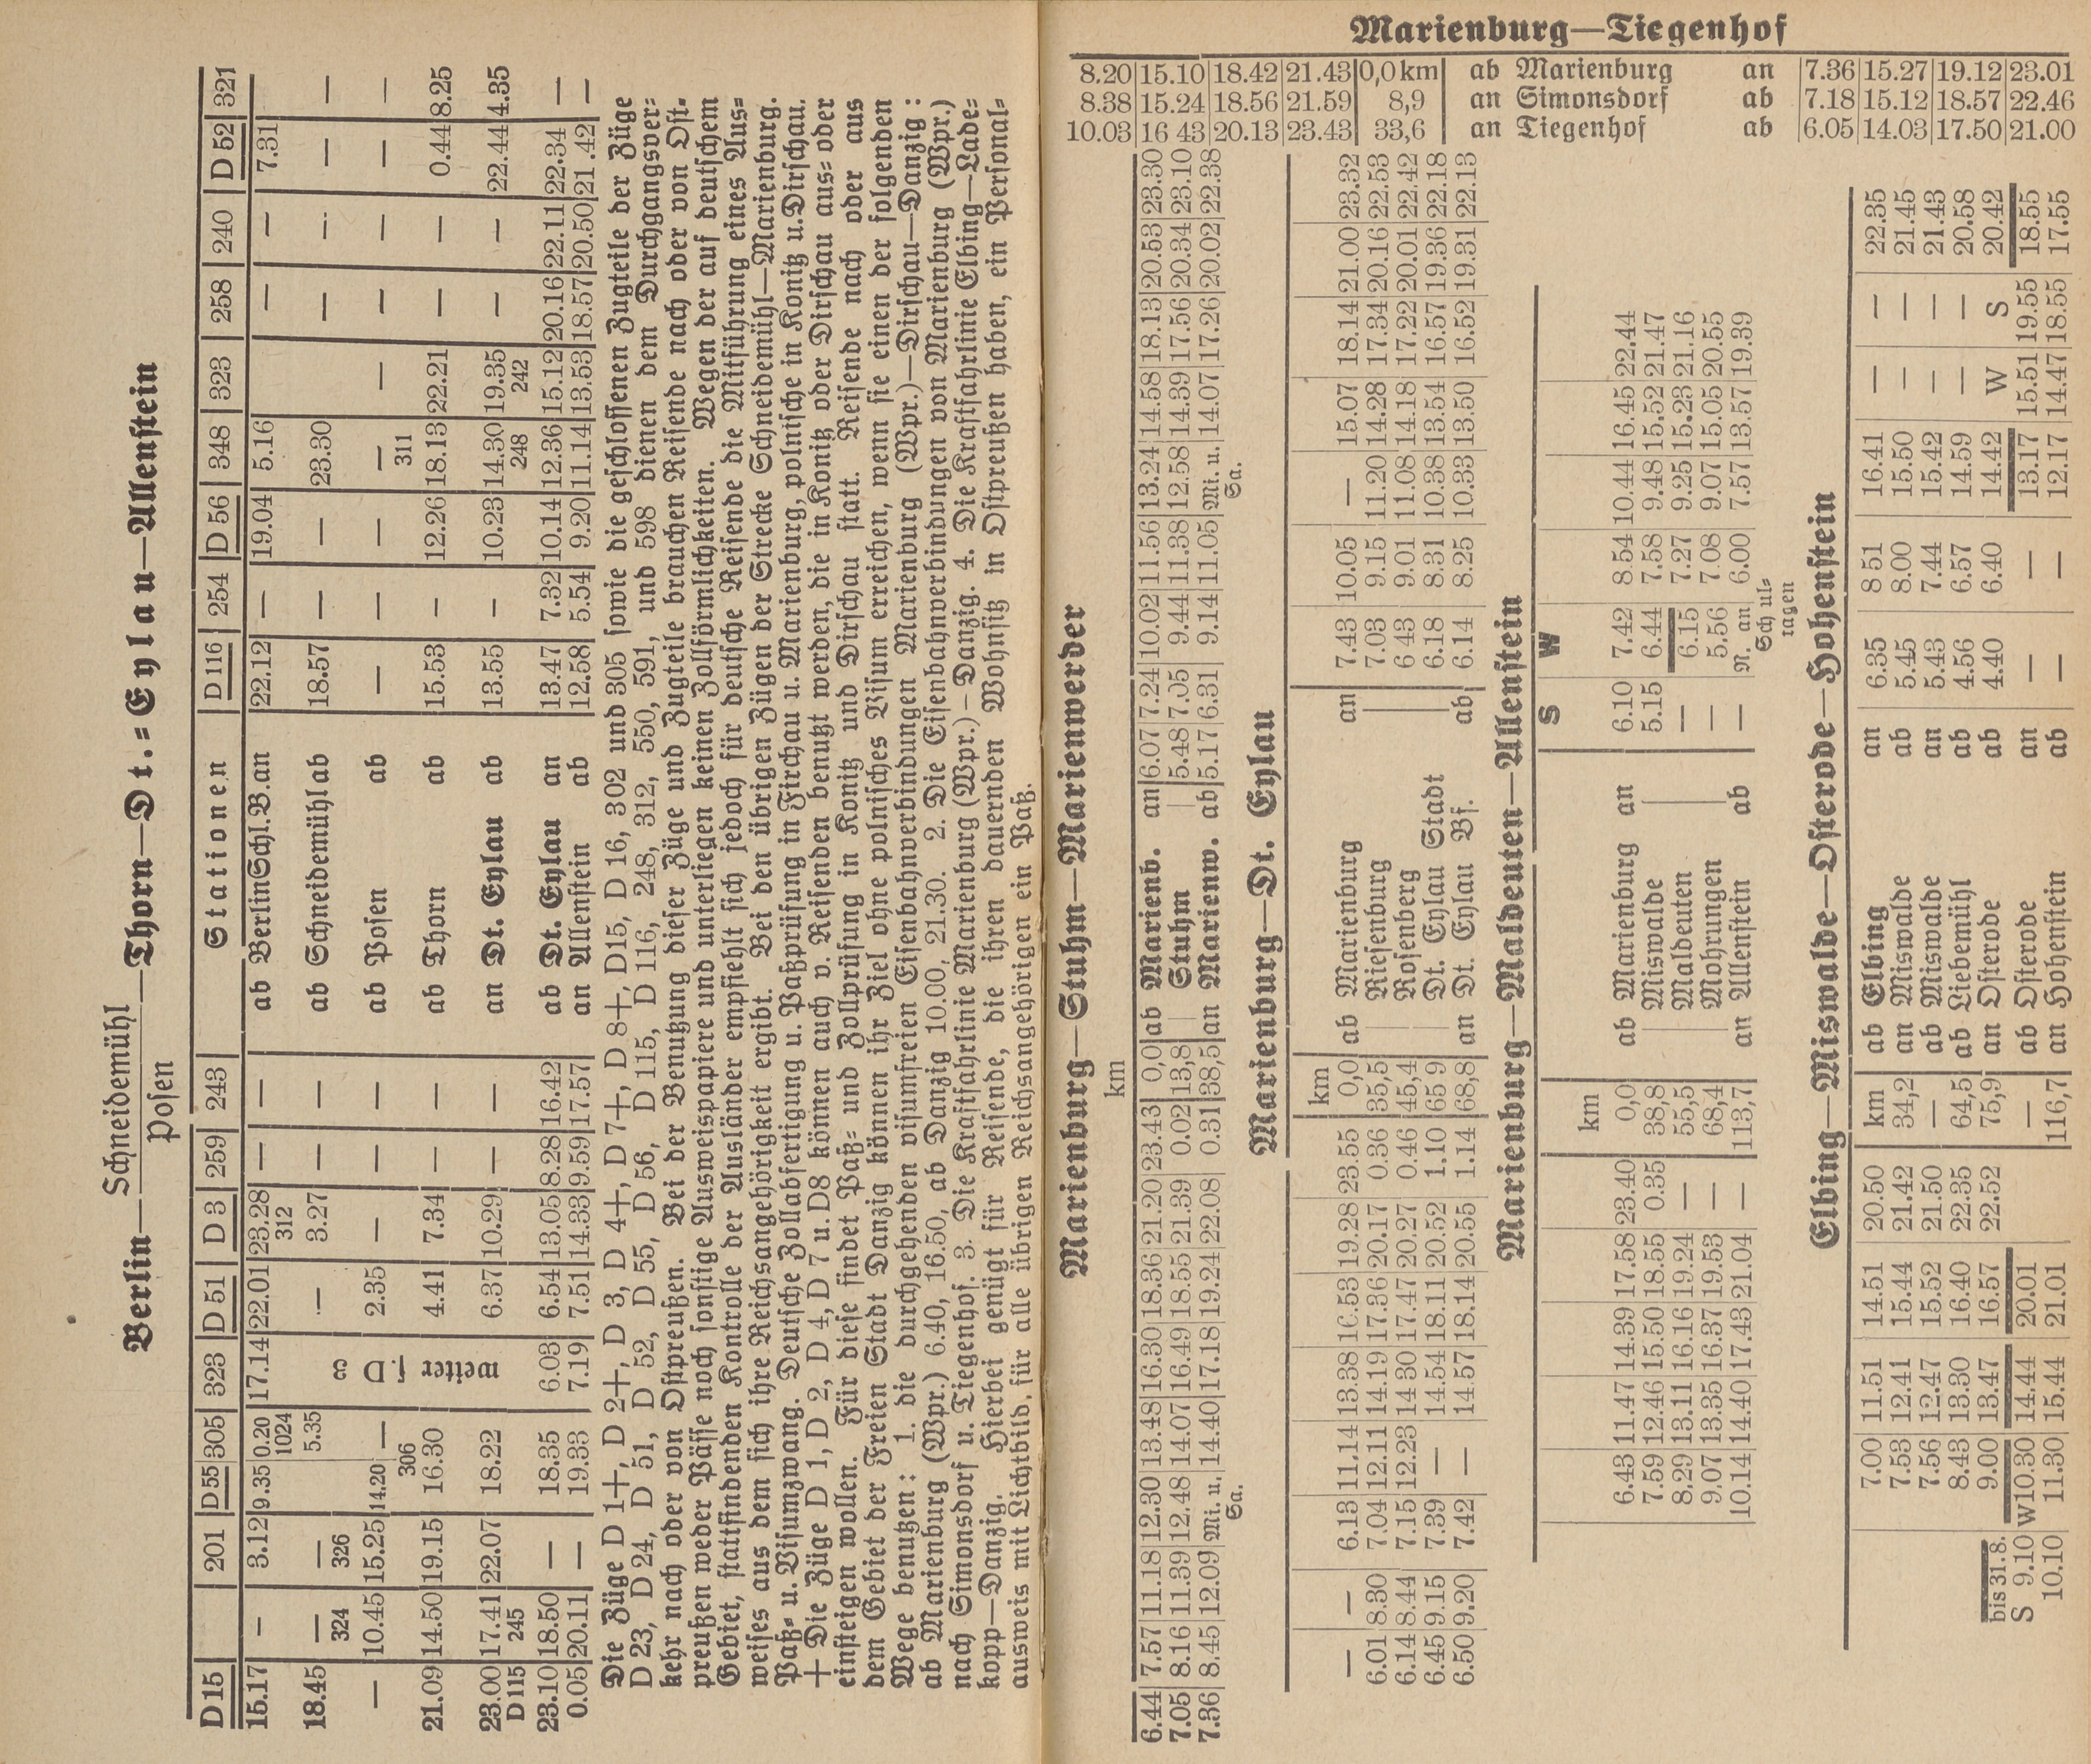 Berlin—Schneidemühl—Thorn—Dt.=Eylau—Allenstein
Posen
D 15 201 D 55 305 323 D 51 D 3 259 243 Stationen D 116 254 D 56 348 323 258 240 D 52 321
15.17 — 3.12 9.35 0.20 17.14 22.01 23.28 — — ab Berlin Schl. B. an 22.12 — 19.04 5.16 — — 7.31
1024 312
18.45 — — 5.35 — 3.27 — — ab Schneidemühl ab 18.57 — — 23.30 — — — —
324 326
— 10.45 15.25 14.20 — 2.35 — — — ab Posen ab — — — — — — — — —
306 311
21.09 14.50 19.15 16.30 weiter 4.41 7.34 — — ab Thorn ab 15.53 — 12.26 18.13 22.21 — — 0.44 8.25
23.00 17.41 22.07 18.22 6.37 10.29 — — an Dt. Eylau ab 13.55 — 10.23 14.30 19.35 — — 22.44 4.35
D 115 245 248 242
23.10 18.50 — 18.35 6.03 6.54 13.05 8.28 16.42 ab Dt. Eylau an 13.47 7.32 10.14 12.36 15.12 20.16 22.11 22.34 —
0.05 20.11 — 19.33 7.19 7.51 14.33 9.59 17.57 an Allenstein ab 12.58 5.54 9.20 11.14 13.53 18.57 20.50 21.42 —
Die Züge D 1+, D 2+, D 3, D 4+, D 7+, D 8+, D15, D 16, 302 und 305 sowie die geschlossenen Zugteile der Züge
D 23, D 24, D 51, D 52, D 55, D 56, D 115, D 116, 248, 312, 550, 591, und 598 dienen dem Durchgangsver=
kehr nach oder von Ostpreußen. Bei der Benutzung dieser Züge und Zugteile brauchen Reisende nach oder von Ost=
preußen weder Pässe noch sonstige Ausweispapiere und unterliegen keinen Zollförmlichkeiten. Wegen der auf deutschem
Gebiet, stattfindenden Kontrolle der Ausländer empfiehlt sich jedoch für deutsche Reisende die Mitführung eines Aus=
weises aus dem sich ihre Reichsangehörigkeit ergibt. Bei den übrigen Zügen der Strecke Schneidemühl—Marienburg.
Paß= u. Visumzwang. Deutsche Zollabfertigung u. Paßprüfung in Firchau u. Marienburg, polnische in Konitz u. Dirschau.
+ Die Züge D 1, D 2, D 4, D 7 u. D8 können auch v. Reisenden benutzt werden, die in Konitz oder Dirschau aus= oder
einsteigen wollen. Für diese findet Paß= und Zollprüfung in Konitz und Dirschau statt. Reisende nach oder aus
dem Gebiet der Freien Stadt Danzig können ihr Ziel ohne polnisches Visum erreichen, wenn sie einen der folgenden
Wege benutzen: 1. die durchgehenden visumfreien Eisenbahnverbindungen Marienburg (Wpr.)—Dirschau—Danzig:
ab Marienburg (Wpr.) 6.40, 16.50, ab Danzig 10.00, 21.30. 2. Die Eisenbahnverbindungen von Marienburg (Wpr.)
nach Simonsdorf u. Tiegenhof. 3. Die Kraftfahrlinie Marienburg (Wpr.)—Danzig. 4. Die Kraftfahrlinie Elbing—Lade=
kopp—Danzig. Hierbei genügt für Reisende, die ihren dauernden Wohnsitz in Ostpreußen haben, ein Personal=
ausweis mit Lichtbild, für alle übrigen Reichsangehörigen ein Paß.
Marienburg—Tiegenhof
8.20 15.10 18.42 21.43 0,0 km ab Marienburg an 7.36 15.27 19.12 23.01
8.38 15.24 18.56 21.59 8,9 an Simonsdorf ab 7.18 15.12 18.57 22.46
10.03 16 43 20.13 23.43 33,6 an Tiegenhof ab 6.05 14.03 17.50 21.00
Marienburg—Stuhm—Marienwerder
km
6.44 7.57 11.18 12.30 13.48 16.30 18.36 21.20 23.43 0,0 ab Marienb. an 6.07 7.24 10.02 11.56 13.24 14.58 18.13 20.53 23.30
7.05 8.16 11.39 12.48 14.07 16.49 18.55 21.39 0.02 13,8 Stuhm 5.48 7.05 9.44 11.38 12.58 14.39 17.56 20.34 23.10
7.36 8.45 12.09 Mi. u. 14.40 17.18 19.24 22.08 0.31 38,5 an Marienw. ab 5.17 6.31 9.14 11.05 Mi. u. 14.07 17.26 20.02 22.38
Sa. Sa.
Marienburg—Dt. Eylau
km
— — 6.13 11.14 13.38 16.53 19.28 23.55 0,0 ab Marienburg an 7.43 10.05 — 15.07 18.14 21.00 23.32
6.01 8.30 7.04 12.11 14.19 17.36 20.17 0.36 35,5 Riesenburg 7.03 9.15 11.20 14.28 17.34 20.16 22.53
6.14 8.44 7.15 12.23 14 30 17.47 20.27 0.46 45,4 Rosenberg 6 43 9.01 11.08 14.18 17.22 20.01 22.42
6.45 9.15 7.39 — 14.54 18.11 20.52 1.10 65 9 Dt. Eylau Stadt 6.18 8.31 10.38 13.54 16.57 19.36 22.18
6.50 9.20 7.42 — 14.57 18.14 20.55 1.14 68,8 an Dt. Eylau Bf. ab 6.14 8.25 10.33 13.50 16.52 19.31 22.13
Marienburg—Maldeuten—Allenstein
km S W
6.43 11.47 14.39 17.58 23.40 0,0 ab Marienburg an 6.10 7.42 8.54 10.44 16.45 22.44
7.59 12.46 15.50 18.55 0.35 38,8 Miswalde 5.15 6.44 7.58 9.48 15.52 21.47
8.29 13.11 16.16 19.24 — 55,5 Maldeuten — 6.15 7.27 9.25 15.23 21.16
9.07 13.35 16.37 19.53 — 68,4 Mohrungen — 5.56 7.08 9.07 15.05 20.55
10.14 14.40 17.43 21.04 — 113,7 an Allenstein ab — N. an 6.00 7.57 13.57 19.39
Schul=
tagen
Elbing—Miswalde—Osterode—Hohenstein
7.00 11.51 14.51 20.50 km ab Elbing an 6.35 8 51 16.41 — — 22.35
7.53 12.41 15.44 21.42 34,2 an Miswalde ab 5.45 8.00 15.50 — — 21.45
7.56 12.47 15.52 21.50 — ab Miswalde an 5.43 7.44 15.42 — — 21.43
8.43 13.30 16.40 22.35 64,5 ab Liebemühl ab 4.56 6.57 14.59 — — 20.58
bis 31.8. 9.00 13.47 16.57 22.52 75,9 an Osterode ab 4.40 6.40 14.42 W S 20.42
S 9.10 W10.30 14.44 20.01 — ab Osterode an — — 13.17 15.51 19.55 18.55
10.10 11.30 15.44 21.01 116,7 an Hohenstein ab — — 12.17 14.47 18.55 17.55